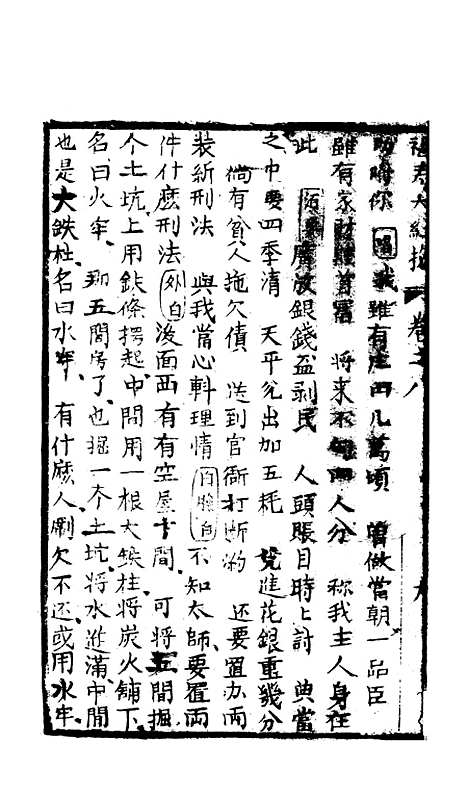 吩咐你 唱 我雖有庄田几萬頃 曾做當朝一品臣
雖有家財 將來不 兩人分 称我主人身在
此 廣放銀錢盃剥民 人頭賬目時上討 典當
之中要四季清 天平兌出加五耗 兌進花銀重幾分
倘有貧人拖欠債 送到官衙打断𥘉 还要置办两
装新刑法 與我當心料理情 白臉白 不知太師要置两
件什麽刑法 外白 後面西有有空屋十間 可將五間掘
个土坑上用鉄條撑起中間用一根大鉄柱將炭火鋪下
名曰火牢 那五間房了也掘一个土坑將水进滿中間
也是大鉄柱名曰水牢 有什麽人剛欠不还或用水牢